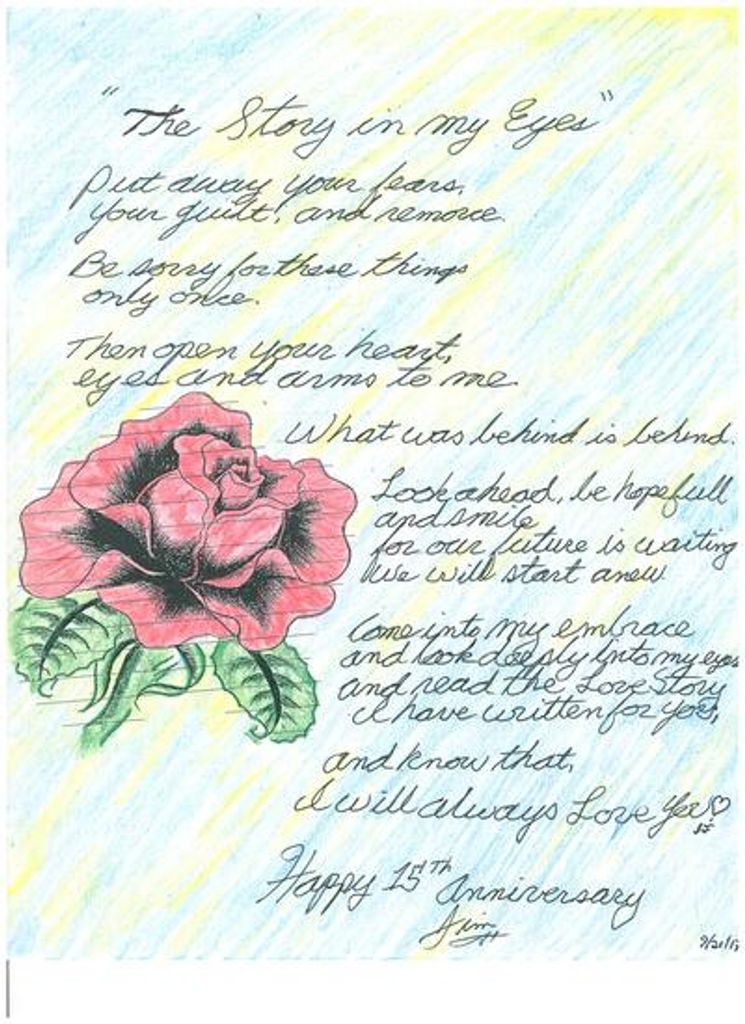 "The Story in my Eyes"
Put away your fears,
your guilt, and remorce.
Be sorry for these things
only once.
Then open your heart,
eyes and arms to me.
What was behind is behind.
Look ahead, be hopefull
and smile
for our future is waiting
we will start anew
Come into my embrace
and look deeply into my eyes
and read the Love Story
I have written for you,
and know that,
I will always Love You
Happy 15th Anniversary
Jim